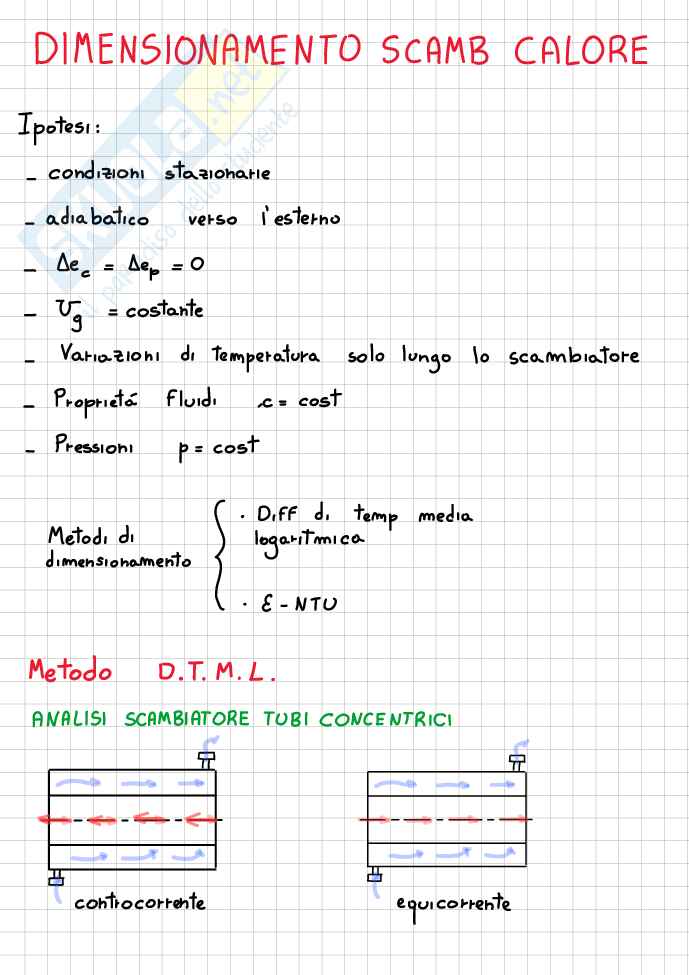 DIMENSIONAMENTO SCAMB CALORE
SKUOLA.net
il paradiso dello studente
Ipotesi:
- condizioni stazionarie
- adiabatico verso l'esterno
- Δec = Δep = 0
- Ug = costante
- Variazioni di temperatura solo lungo lo scambiatore
- Proprietá Fluidi c = cost
- Pressioni p = cost
Metodi di
dimensionamento
· Diff di temp media
logaritmica
· ε - NTU
Metodo D.T.M.L.
ANALISI SCAMBIATORE TUBI CONCENTRICI
controcorrente
equicorrente